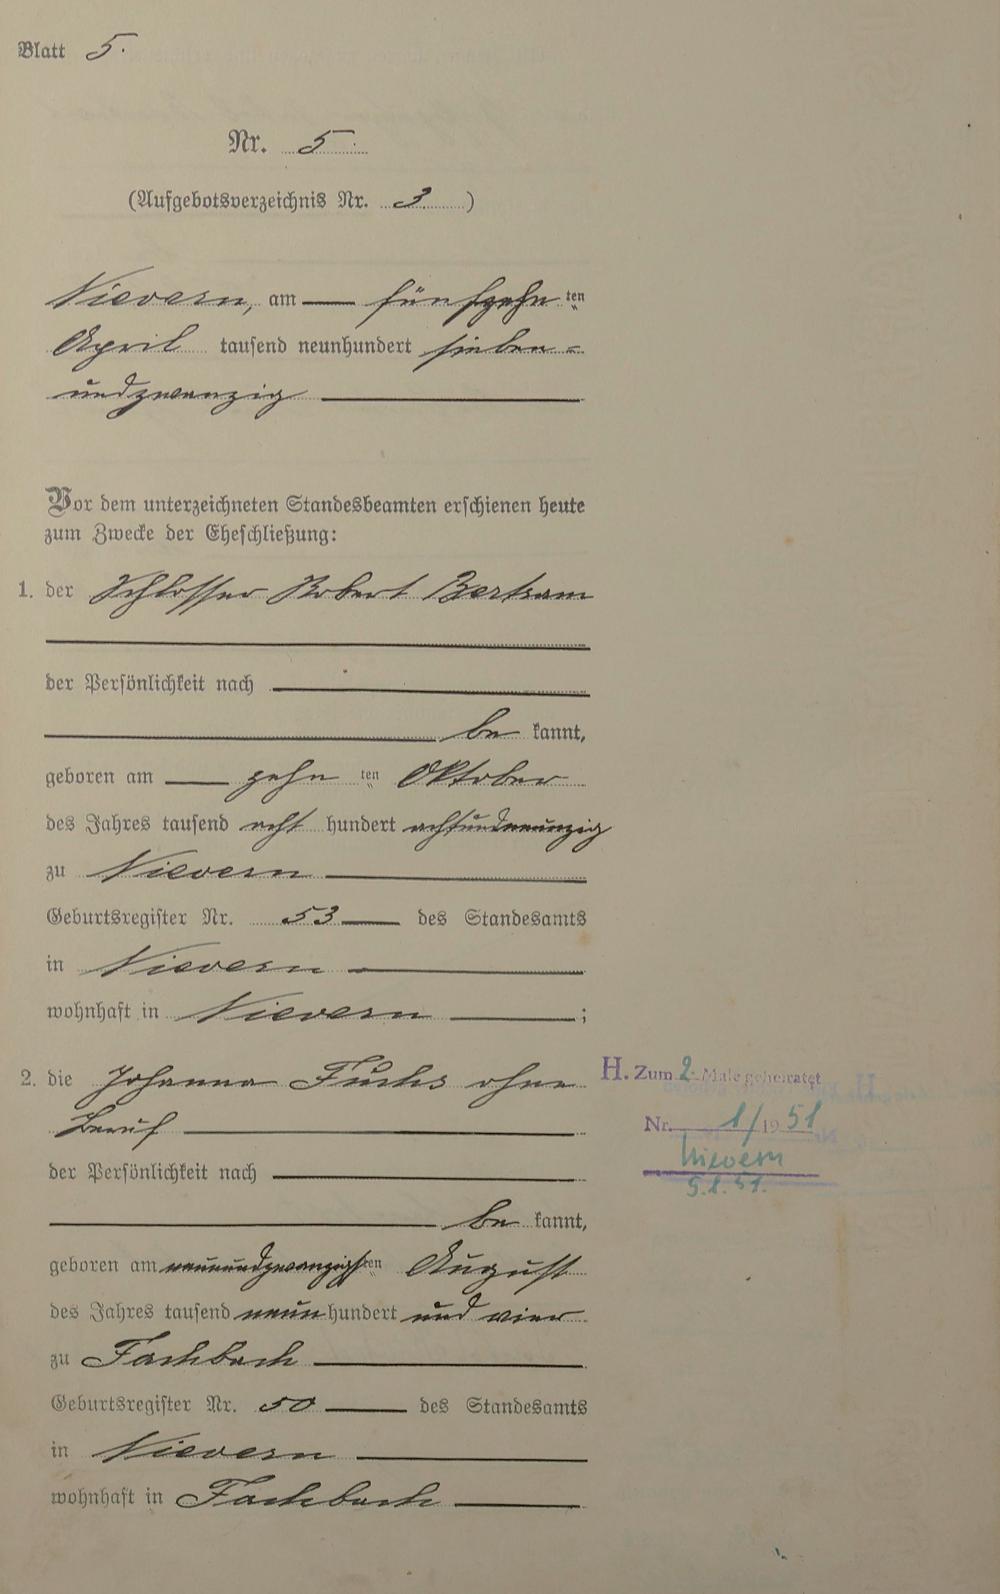 Blatt 5.
Nr. 5.
(Aufgebotsverzeichnis Nr. 3)
Nievern, am — fünfzehn ten
April tausend neunhundert sieben=
undzwanzig
Vor dem unterzeichneten Standesbeamten erschienen heute
zum Zwecke der Eheschließung:
1. der Schlosser Robert Bertram
der Persönlichkeit nach
be kannt,
geboren am — zehn ten Oktober
des Jahres tausend acht hundert achtundneunzig
zu Nievern
Geburtsregister Nr. 53 — des Standesamts
in Nievern
wohnhaft in Nievern ;
2. die Johanna Fuchs ohne
Beruf
der Persönlichkeit nach
be kannt,
geboren am neunundzwanzigsten August
des Jahres tausend neun hundert und vier
zu Fachbach
Geburtsregister Nr. 50 — des Standesamts
in Nievern
wohnhaft in Fachbach
H. Zum 2. Male geheiratet
Nr. 1/1951
Nievern
5.1.51.